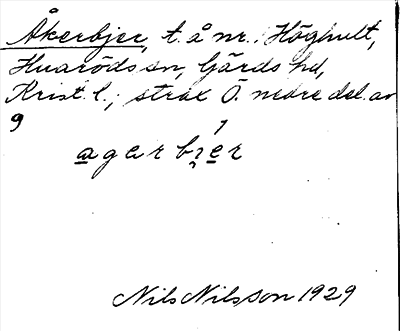 Åkerbjer, t. å nr. Höghult,
Huaröds sn, Gärds hd,
Krist. l.; strax Ö. nedre del. av
9 1
agerbjer
Nils Nilsson 1929